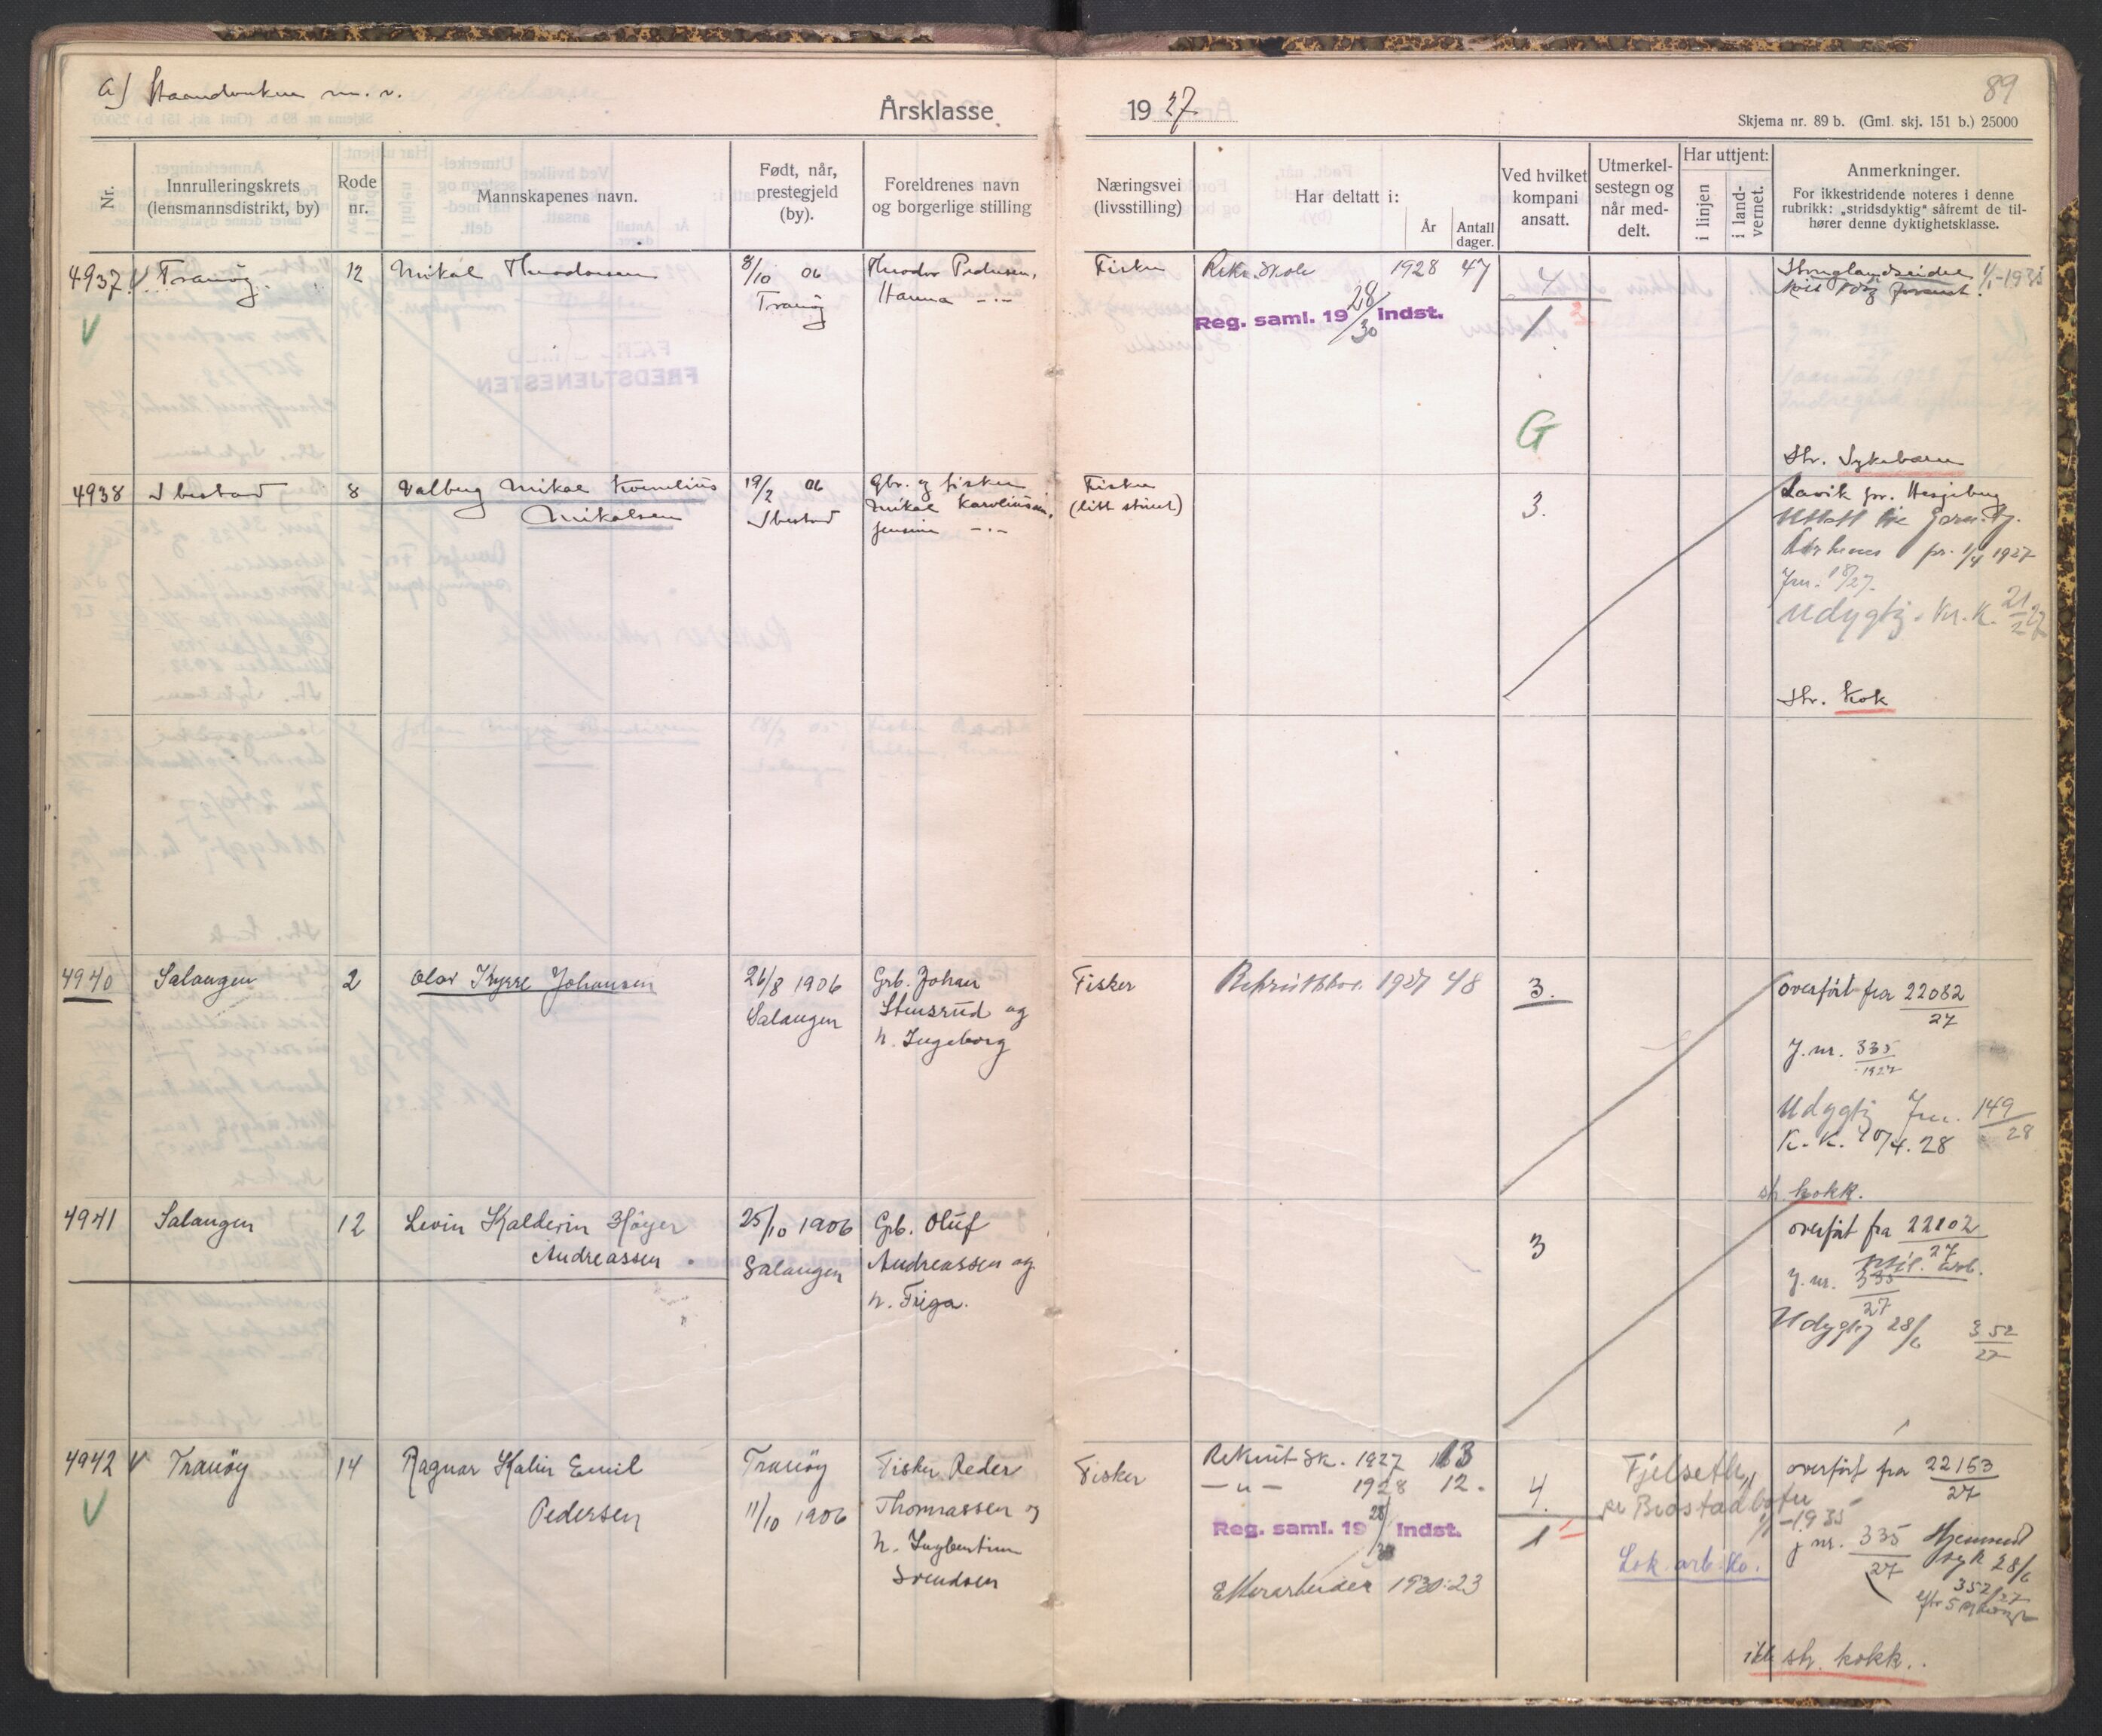 a) Haandverkere m. v.
Årsklasse
1927
89
Skjema nr. 89 b. (Gml. skj. 151 b.) 25000
Nr.
Innrulleringskrets
(lensmannsdistrikt, by)
Rode
nr.
Mannskapenes navn.
Født, når,
prestegjeld
(by).
Foreldrenes navn
og borgerlige stilling
Næringsvei
(livsstilling)
Har deltatt i:
År
Antall
dager.
Ved hvilket
kompani
ansatt.
Utmerkel-
sestegn og
når med-
delt.
Har uttjent:
i linjen
i land-
vernet.
Anmerkninger.
For ikkestridende noteres i denne
rubrikk: „stridsdyktig“ såfremt de til-
hører denne dyktighetsklasse.
4937 V Tranöy
12
Mikal Theodorsen
8/10 06
Tranöy
Theodor Pedersen,
Hanna -"-
Fisker
Rekr. skole 1928 47
Reg. saml. 19 28/30 indst.
4
1
G
Stonglandseidet 1/1-1935
Str. Sykebærer
4938
Ibestad
8
Valberg Mikal Kornelius
Mikalsen
19/2 06
Ibestad
Gbr. og fisker
Mikal Karoliussen,
Jensine -"-
Fisker
(litt stuert)
3.
Lavik pr. Hesjeberg
pr. 1/4 1927
Jnr. 18/27.
Udygtig Kr. K. 21/2 27
Str. Kok
4940
Salangen
2
Olav Trygve Johansen
26/8 1906
Salangen
Grb. Johan
Stensrud og
h. Ingeborg
Fisker
Rekrutskole 1927 48
3.
overført fra 22082
27
J. nr. 335
1927
Udygtig Jnr. 149
28
K. K. 10/4. 28
str. kokk.
4941
Salangen
12
Levin Kalderin Höyer
Andreassen
25/10 1906
Salangen
Grb. Oluf
Andreassen og
h. Friga.
3
overført fra 22102
27
J. nr. 335
27
Udygtig 28/6 352
27
4942 V Tranöy
14
Ragnar Kalin Emil
Pedersen
Tranöy
11/10 1906
Fisker Peder
Thomassen og
h. Ingbertine
Svendsen
Fisker
Rekrut sk. 1927 13
-"- 1928 12.
Reg. saml. 19 28/30 indst.
Etterarbeider 1930: 23
4.
1
Fjelseth,
pr Brøstadbotn
1/1-1935
Lok. arb. ko.
overført fra 22153
27
J nr. 335
27
Hjemsend
syk 28/6
352/27
ikke str. kokk.